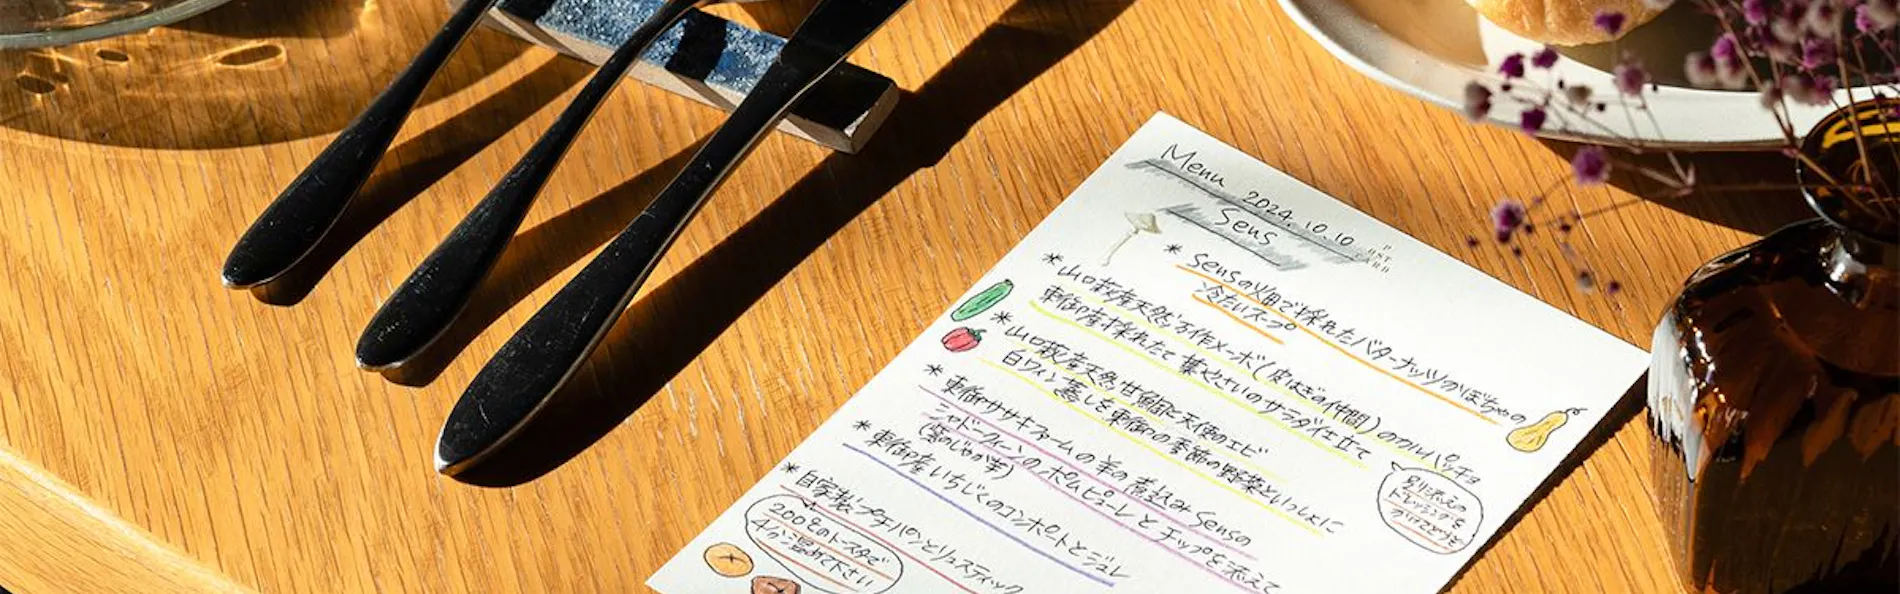 Menu 2024.10.10
Sens
P
OST
CARD
* Sensの畑で採れたバターナッツかぼちゃの
冷たいスープ
* 山口萩産天然 方作メーボ(皮はぎの仲間)のカルパッチョ
東御産 採れたて 葉やさいのサラダ仕立て
別り添えの
ドレッシングを
かけて
* 山口萩産天然甘鯛と天使のエビ
白ワイン蒸しを東御の季節の野菜といっしょに
* 東御ササキファームの羊の煮込み Sensの
シャドークィーンのポムピューレとチップを添えて
(紫のじゃが芋)
* 東御産いちじくのコンポートとジュレ
* 自家製プチパンとリュスティック
200℃のトースターで
4分温めて下さい